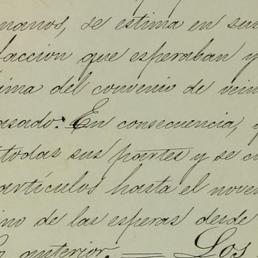 manos, se estima en sus
faccion que esperaban y
ima del convenio de vein
asado. En consecuencia, y
todas sus partes y se cu
artículos hasta el noven
ino de las esperas desde
anterior. = Los